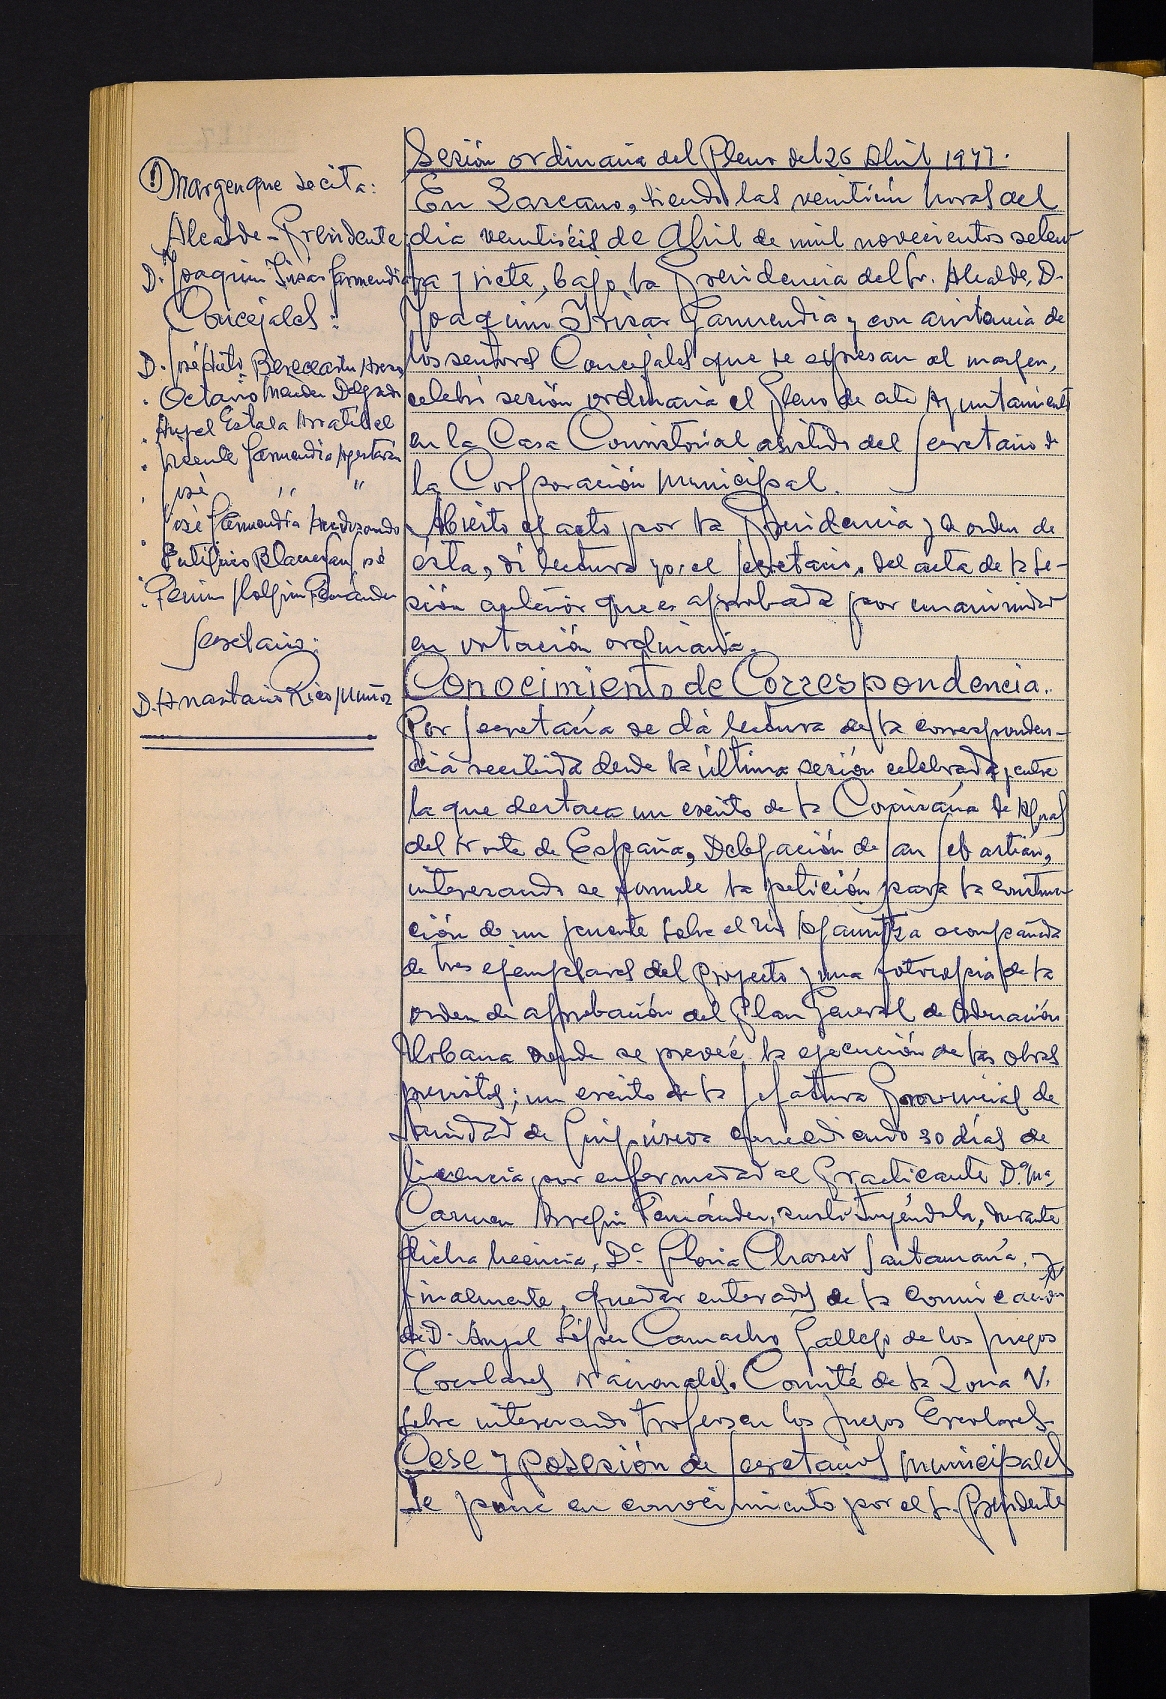 ① Margen que se cita:
Alcalde-Presidente
D. Joaquin Irizar Garmendia
Concejales:
D. José Luis Bereciartu
. Octavio Mendez Delgado
. Angel Estala Arratibel
. Vicente Garmendia Apestaría
. José " "
. José Garmendia
. Eutiquio Blanco San José
. Fermín Holguin Fernandez
Secretario:
D. Anastasio Rico Muñoz
Sesión ordinaria del Pleno del 26 Abril 1977.
En Lazcano, siendo las veintiún horas del
día veintiséis de Abril de mil novecientos seten-
ta y siete, bajo la Presidencia del Sr. Alcalde, D.
Joaquin Irizar Garmendia y con asistencia de
los señores Concejales que se expresan al margen,
celebró sesión ordinaria el Pleno de este Ayuntamiento
en la Casa Consistorial asistido del Secretario de
la Corporación Municipal.
Abierto el acto por la Presidencia y de orden de
ésta, dí lectura yo, el Secretario, del acta de la se-
sión anterior que es aprobada por unanimidad
en votación ordinaria.
Conocimiento de Correspondencia.
Por Secretaría se dá lectura de la corresponden-
cia recibida desde la última sesión celebrada, entre
la que destaca un escrito de la Comisaría de Aguas
del Norte de España, Delegación de San Sebastián,
interesando se formule la petición para la construc-
ción de un puente sobre el río Agauntza acompañada
de tres ejemplares del Proyecto y una fotocopia de la
orden de aprobación del Plan General de Ordenación
Urbana donde se preveé la ejecución de las obras
previstas; un escrito de la Jefattura Provincial de
Sanidad de Guipúzcoa concediendo 30 días de
licencia por enfermedad al Practicante Dª. Mª
Carmen Arregin Fernández, sustituyéndola, durante
dicha licencia, Dª. Gloria Chasco Santamaría, y
finalmente, quedar enterados de la comunicación
de D. Angel López Camacho Gallego de los Juegos
Escolares Nacionales. Comité de la Zona V.
sobre interesando trofeos en los Juegos Escolares.
Cese y posesión de Secretarios municipales
Se pone en conocimiento por el Sr. Presidente